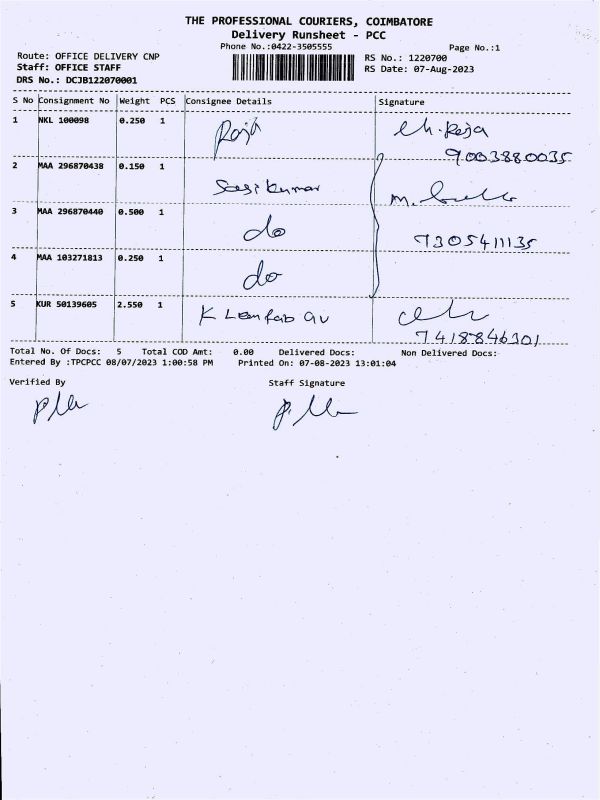 THE PROFESSIONAL COURIERS, COIMBATORE
Delivery Runsheet - PCC
Phone No.:0422-3505555 Page No.:1
Route: OFFICE DELIVERY CNP RS No.: 1220700
Staff: OFFICE STAFF RS Date: 07-Aug-2023
DRS No.: DCJB122070001
S No Consignment No Weight PCS Consignee Details Signature
1 NKL 100098 0.250 1 Raja ch. Raja
9003880035
2 MAA 296870438 0.150 1 Sasi kumar M.
3 MAA 296870440 0.500 1 do
9305411135
4 MAA 103271813 0.250 1 do
5 KUR 50139605 2.550 1 K
7418846301
Total No. Of Docs: 5 Total COD Amt: 0.00 Delivered Docs: Non Delivered Docs:
Entered By :TPCPCC 08/07/2023 1:00:58 PM Printed On: 07-08-2023 13:01:04
Verified By Staff Signature